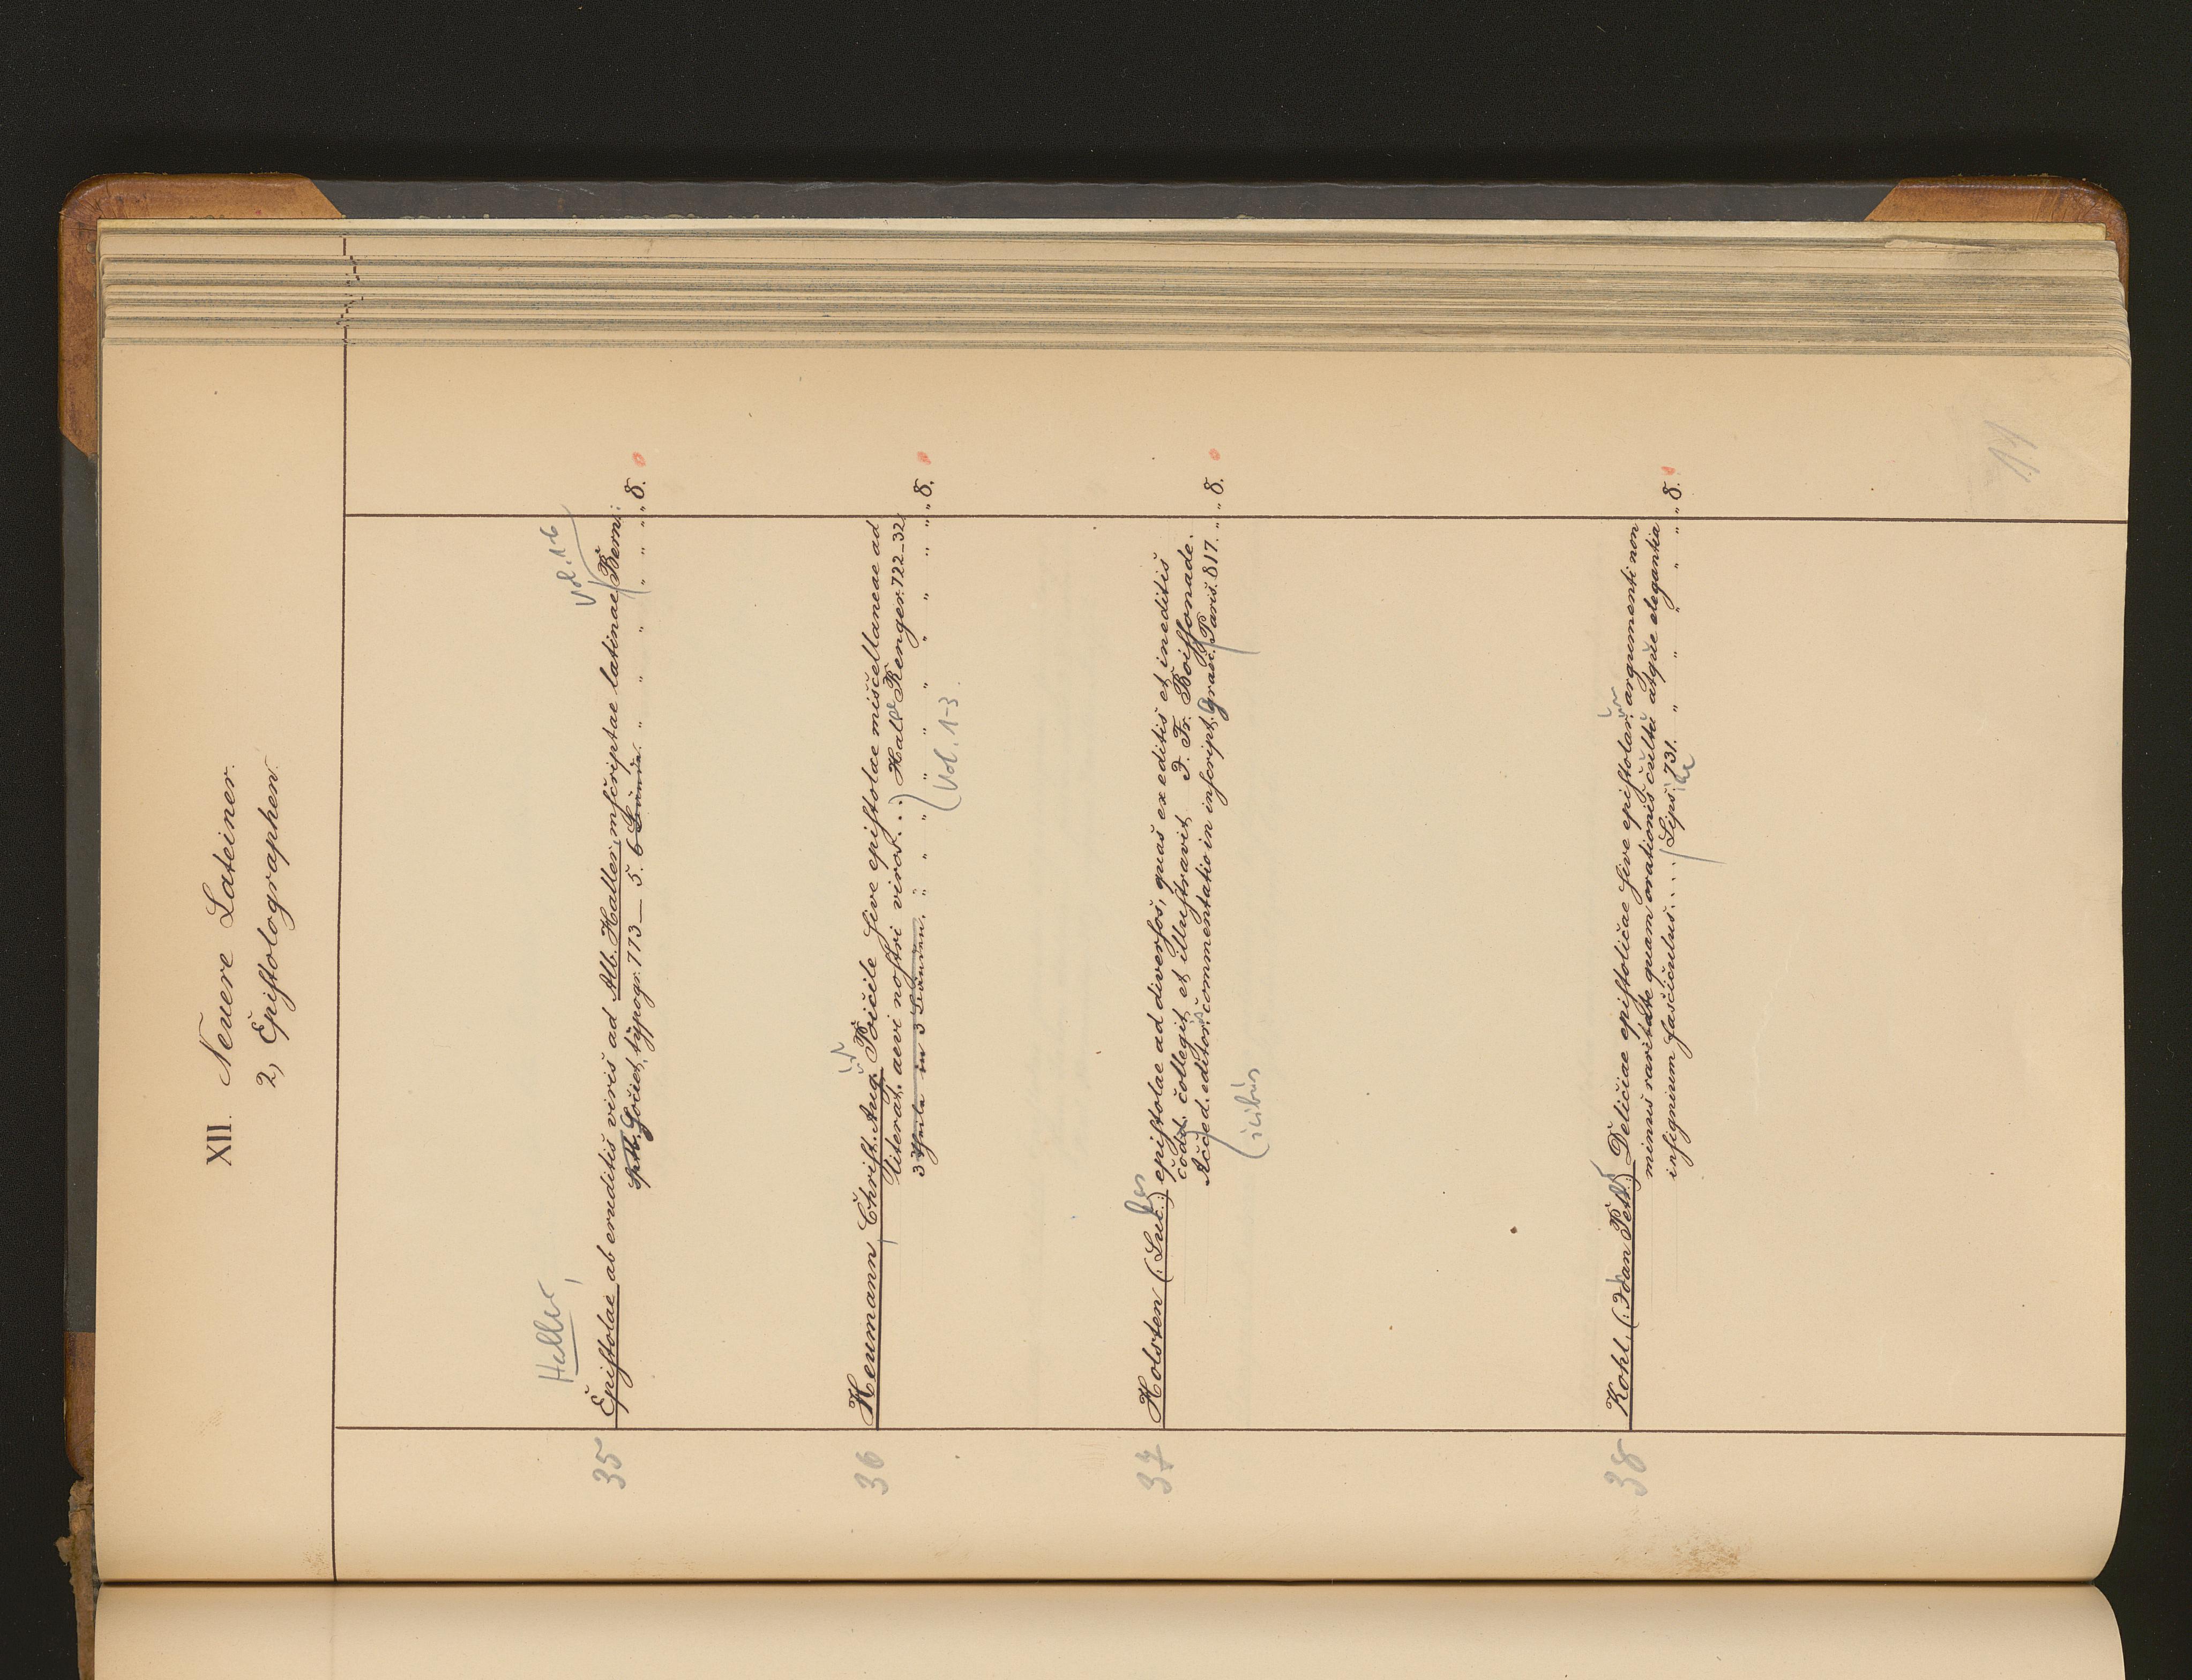 XII. Neuere Lateiner.
2, Epistolographen
Haller,
Vol. 1-6
35 Epistolae ab eruditis viris ad Alb. Haller. mscriptae latinae Bern:
Societ. typogr. 773 — 5. 6 Bände. " " " " " " 8.
36 Heumann, Christ. Aug. Poicile sive epistolae miscellaneae ad
literat. aevi nostri viros. . . Hal. Renger. 722-32.
3 Theile in 3 Bänden. " " " " " " " " 8.
(Vol. 1-3.
37 Holsten (Luc.) epistolae ad diversos, quas ex editis et ineditis
codd. collegit et illustravit J. Fr. Boissonade.
Acced. editor. commentatio in inscript. Graec. Paris. 817. " " 8.
(icibus
38 Kohl, (Joan Petr.) Deliciae epistolicae sive epistolar. argumenti non
minus raritate quam orationis cultu atque elegantia
insignium fasciculus. . . . Lips. 731. " " " " " 8.
11